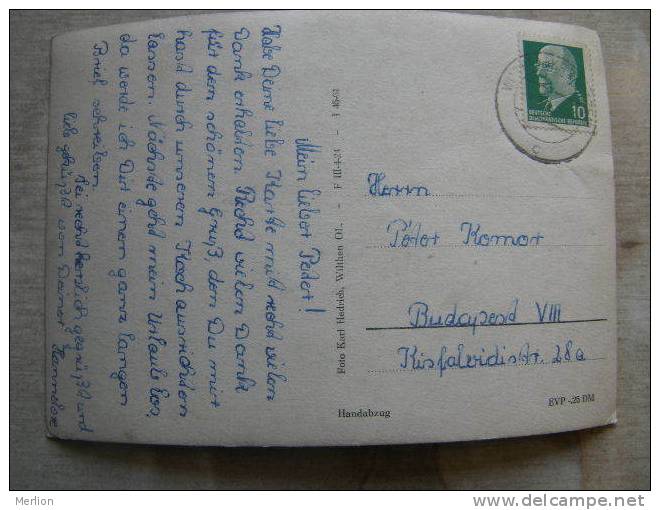 Mein lieber Peter!
Habe Deine liebe Karte mit recht vielen
Dank erhalten. Recht vielen Dank
für den schönen Gruß, den Du mir
hast durch unseren Koch ausrichten
lassen. Nächste geht mein Urlaub los,
da werde ich Dir einen ganz langen
Brief schreiben.
Sei recht herzlich gegrüßt und
lieb geküßt von Deiner
Hannelore
Foto Karl Hedrich, Wilthen OL. - F III-4-24 - J 48-61
10
DEUTSCHE
DEMOKRATISCHE REPUBLIK
Herrn
Péter Komor
Budapest VIII
Kisfaludistr. 28a
Handabzug
EVP -.25 DM
Merlion
http://www.delcampe.net